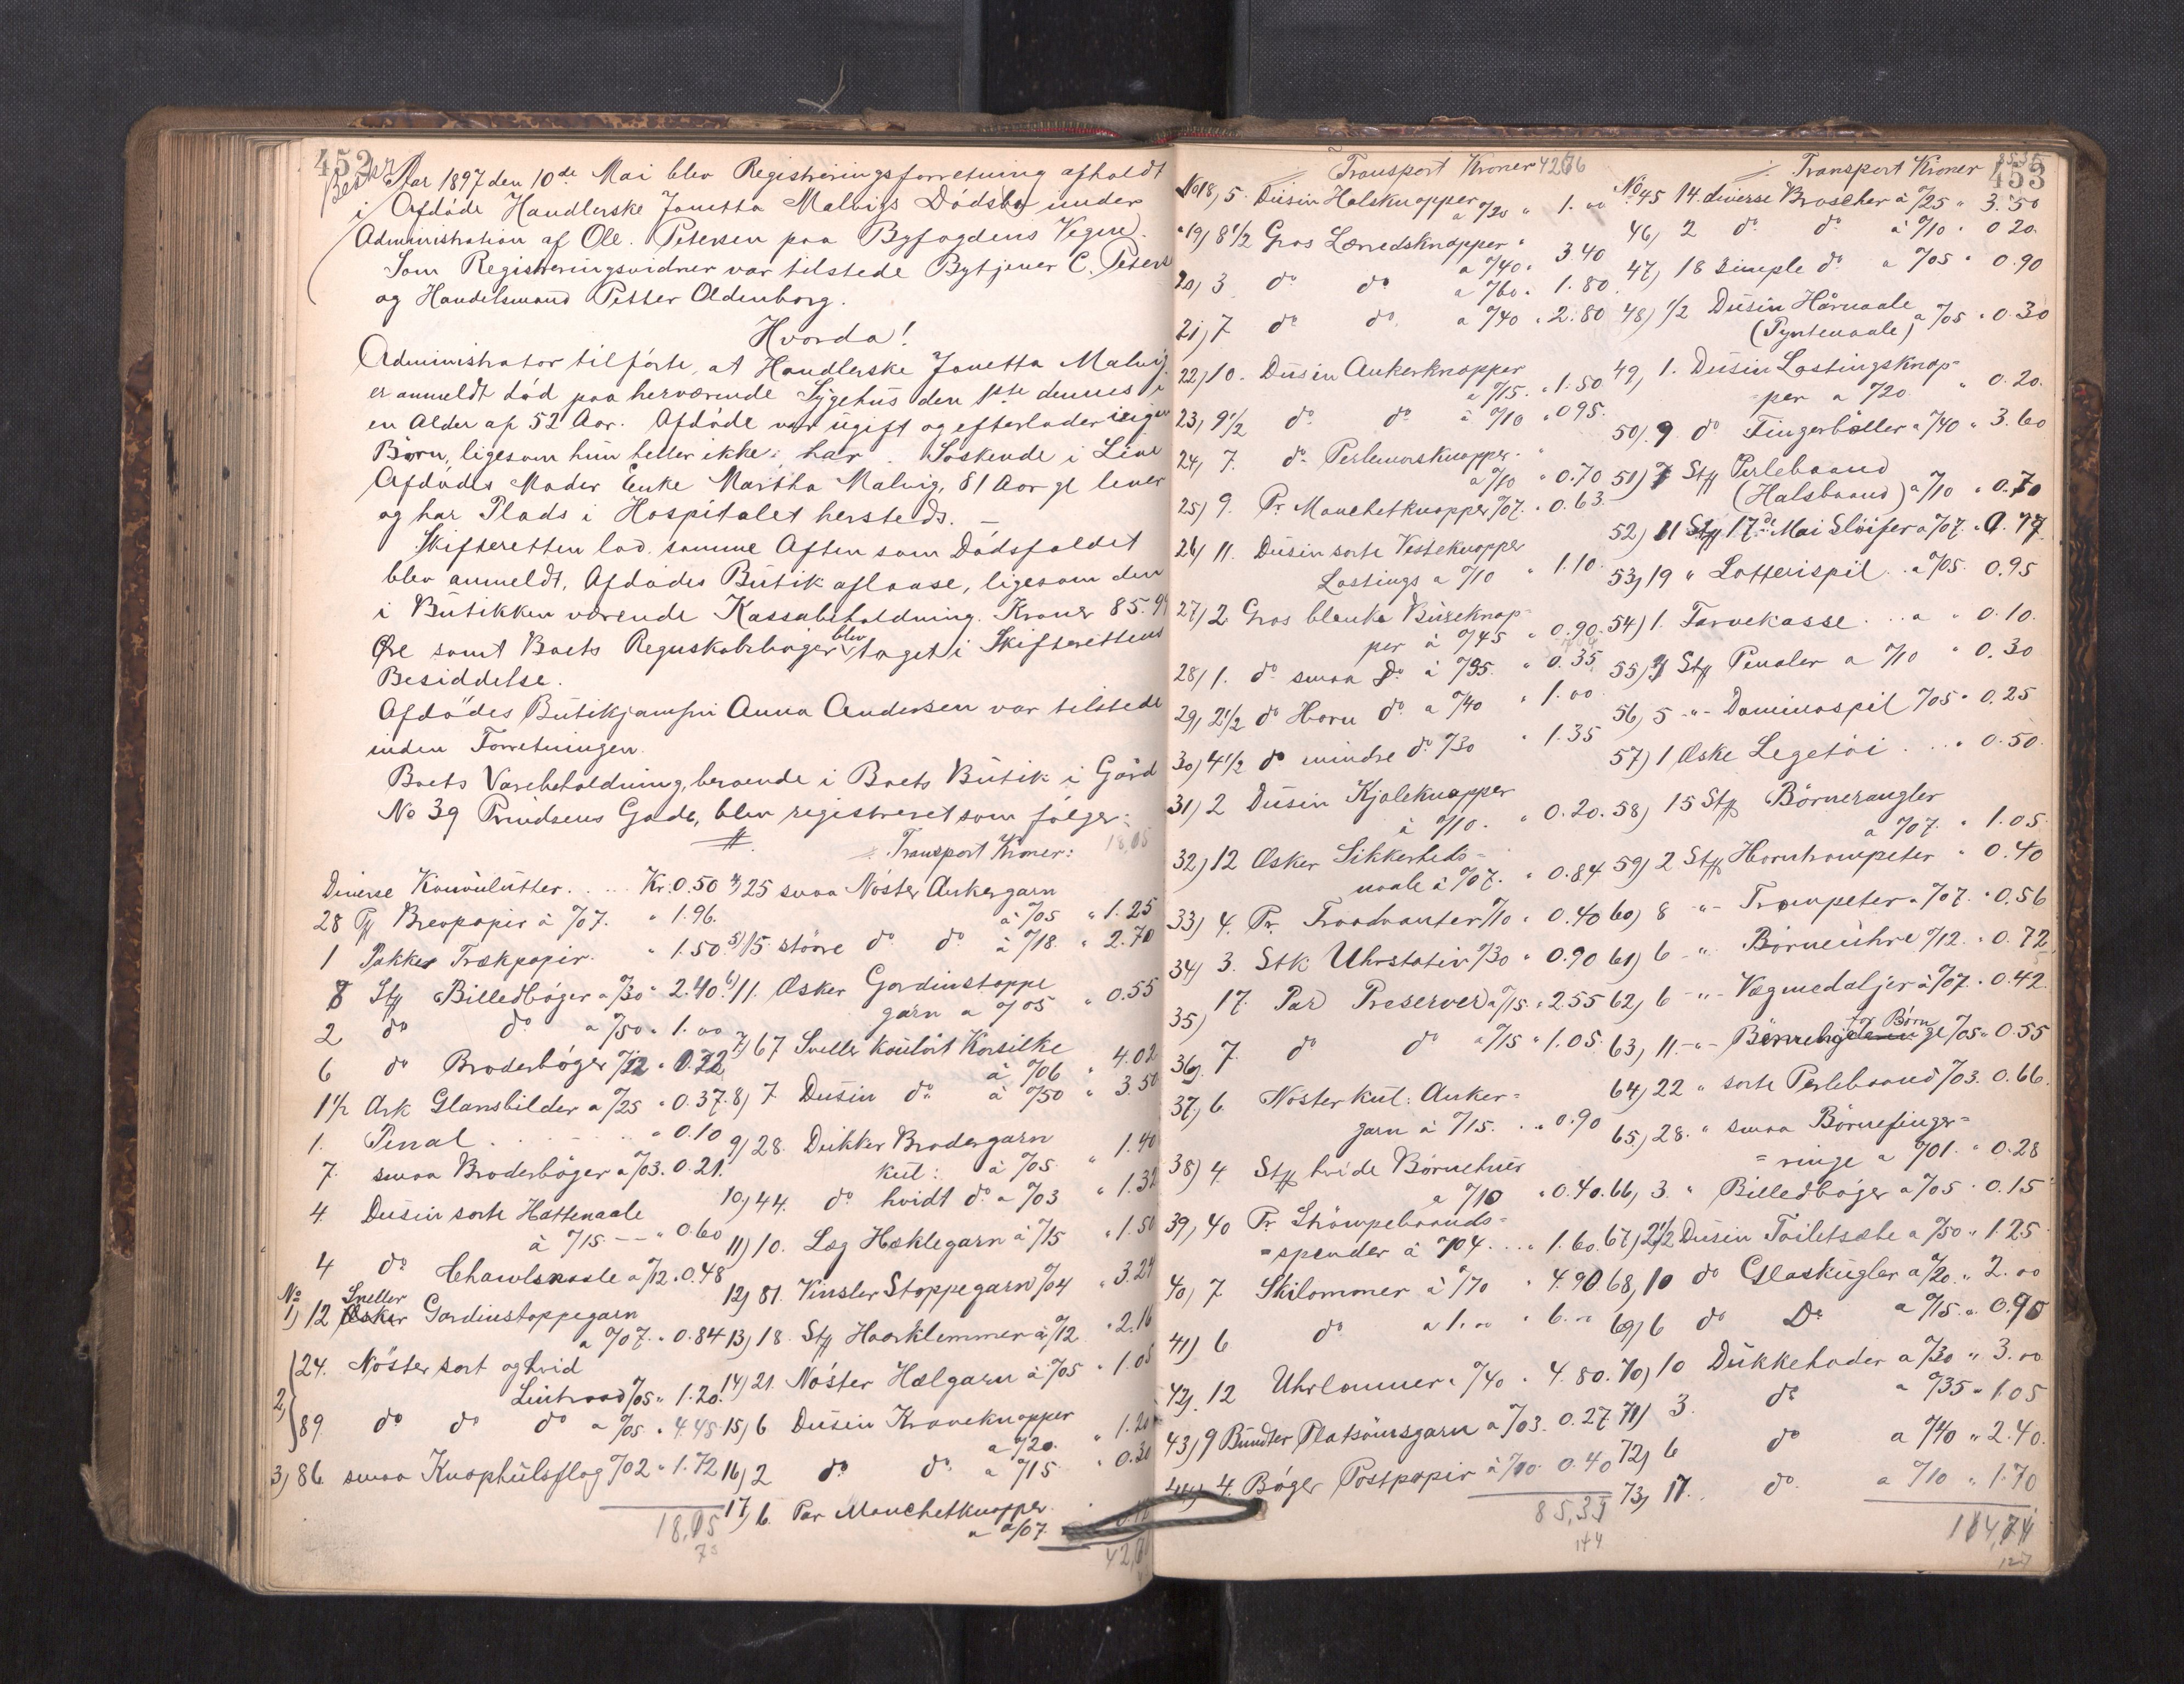 452
Beskr
Aar 1897 den 10de Mai blev Registreringsforretning afholdt
i Afdöde Handlerske Janetta Malvigs Dödsbo under
Administration af Ole. Petersen paa Byfogdens Vegne.
Som Registreringsvidner var tilstede Bytjener C. Peters
og Handelsmand Petter Oldenborg.
Hvorda!
Administrator tilförte, at Handlerske Janetta Malvig
er anmeldt död paa herværende Sygehus den 1ste dennes i
en Alder af 52 Aar. Afdöde var ugift og efterlader ingen
Börn, ligesom hun heller ikke har Söskende i Live
Afdödes Moder Enke Martha Malvig, 81 Aar gl lever
og har Plads i Hospitalet hersteds. –
Skifteretten lod samme Aften som Dödsfaldet
blev anmeldt, Afdödes Butik aflaase, ligesom den
i Butikken værende Kassabeholdning Kroner 85.94
Øre samt Boets Regnskabsböger blev taget i Skifterettens
Besiddelse.
Afdödes Butikjomfru Anna Andersen var tilstede
inden Forretningen.
Boets Varebeholdning, beroende i Boets Butik i Gård
No 39 Prindsens Gade, blev registreret som fölger:
Diverse Konvolutter. . . . Kr. 0.50
28 Pk Brevpapir à %07. " 1.96.
1 Pakke Trækpapir. " 1.50
8 Stk Billedböger a %30 " 2.40.
2 do do a %50 " 1.00
6 do Broderböger %12 " 0.72
1 1/2 Ark Glansbilder a %25 " 0.37.
1. Penal . . . . . " 0.10
7. smaa Broderböger a %03. 0.21.
4. Dusin sorte Hattenaale
à %15. — " 0.60
4 do Chawlsnaale a %12 " 0.48
No Sneller
1) 12 Æsker Gardinstoppegarn
a %07. " 0.84
2) 24. Nöster sort og hvid
Lintraad %05 " 1.20.
89. do do do a %05 " 4.45
3) 86 smaa Knaphulsflag %02 " 1.72
18,05
73
Transport Kroner: 18,05
4) 25 smaa Nöster Ankergarn
à %05 " 1.25
5) 15. större do do à %18. " 2.70
6) 11. Æsker Gardinstoppe
garn a %05 " 0.55
7) 67 Sneller koulört Korsilke
à %06 " 4.02
8) 7 Dusin do à %50 " 3.50
9) 28. Dukker Brodergarn
kul: à %05. " 1.40
10) 44. do hvidt do a %03 " 1.32
11) 10. Læg Hæklegarn à %15 " 1.50
12) 81. Vinsler Stoppegarn %04 " 3.24
13) 18. Stk Haarklemmer à %12 " 2.16
14) 21. Nöster Hælgarn à %05 " 1.05
15) 6 Dusin Kraveknapper
a %20. " 1.20
16) 2 do do a %15 " 0.30
17) 6. Par Manchetknapper.
a %07
42,
Transport Kroner 42,66
No 18) 5. Dusin Halsknapper
a %20 " 1.00
19) 8 1/2 Gros Lærredsknapper
a %40 " 3.40
20) 3 do do a %60 " 1.80
21) 7 do do. a %40 " 2.80
22) 10. Dusin Ankerknapper
a %15. " 1.50
23) 9 1/2 do do à %10 " 0.95.
24) 7. do Perlemorsknapper.
a %10 " 0.70
25) 9. Pr. Manchetknapper %07. " 0.63.
26) 11. Dusin sorte Vesteknapper
Lastings a %10 " 1.10
27) 2 Gros blanke Buxeknap-
per à %45 " 0.90.
28) 1. do smaa Do à %35. " 0.35
29) 2 1/2 do Horn do a %40 " 1.00
30) 4 1/2 do mindre do %30 " 1.35
31) 2 Dusin Kjoleknapper
à %10. " 0.20.
32) 12 Æsker Sikkerheds-
naale à %07. " 0.84
33) 4. Pr. Traadvanter %10 " 0.40
34) 3. Stk Uhrstativ %30 " 0.90
35) 17. Par Preserver a %15. " 2.55
36) 7. do do a %15 " 1.05.
37) 6 Nöster kul: Anker-
garn à %15. . . " 0.90
38) 4. Stk hvide Börnehuer
a %10 " 0.40.
39) 40 Pr. Strömpebaands-
=spender à %04. . . " 1.60.
40) 7 Skilommer à %70 " 4.90
41) 6 do a 1.00 " 6.00
42) 12 Uhrlommer a %40 " 4.80.
43) 9 Bundter Platsömsgarn a %03. 0.27
44) 4. Böger Postpapir à %10 0.40
85,35
144
Transport Kroner 85,35
453
No 45 14. diverseБроscher à %25 " 3.50
46) 2 do do à %10 " 0 20.
47) 18 simple do a %05 " 0.90
48) 1/2 Dusin Hårnaale
(Pyntenaale) a %05 " 0.30
49) 1. Dusin Lastingsknap-
-per a %20. " 0.20.
50) 9 do Fingerböller a %40 " 3.60
51) 7 Stk Perlebaand
(Halsbaand) a %10 " 0.70
52) 11 Stk 17de Mai Slöifer a %07. " 0.77
53) 19 " Lotterispil . . a %05. 0.95
54) 1. Farvekasse . . . a " 0.10.
55) 3 Stk Penaler a %10 " 0.30
56) 5 -"- Dominospil %05 " 0.25
57) 1 Æske Legetöi . . . " 0.50.
58) 15 Stk Börnerangler
a %07. " 1.05.
59) 2 Stk Horntrompeter " 0.40
60) 8 -"- Trompeter a %07. " 0.56
61) 6 -"- Börneuhre %12. " 0.72
62) 6 -"- Vægmedaljer à %07 " 0.42.
63) 11. -"- for Börn %05 " 0.55
64) 22 " sorte Perlebaand %03. 0.66.
65) 28. " smaa Börnefinger-
=ringe a %01. " 0.28
66) 3. " Billedböger a %05 " 0.15
67) 2 1/2 Dusin Toiletsæbe a %50 " 1.25
68) 10 do Glaskugler a %20 " 2.00
69) 6 do Do a %15. " 0.90
70) 10 Dukkehoder a %30 " 3.00
71) 3. do a %35 " 1.05
72) 6 do a %40 " 2.40.
73) 17. do. a %10 " 1.70